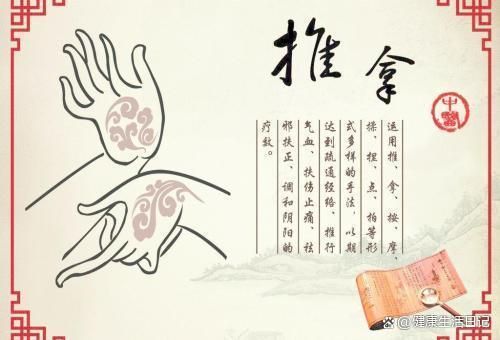 推拿
中醫
运用推、拿、按、摩、
揉、捏、点、拍等形
式多样的手法，以期
达到疏通经络、推行
气血、扶伤止痛、祛
邪扶正、调和阴阳的
疗效。
健康生活日记